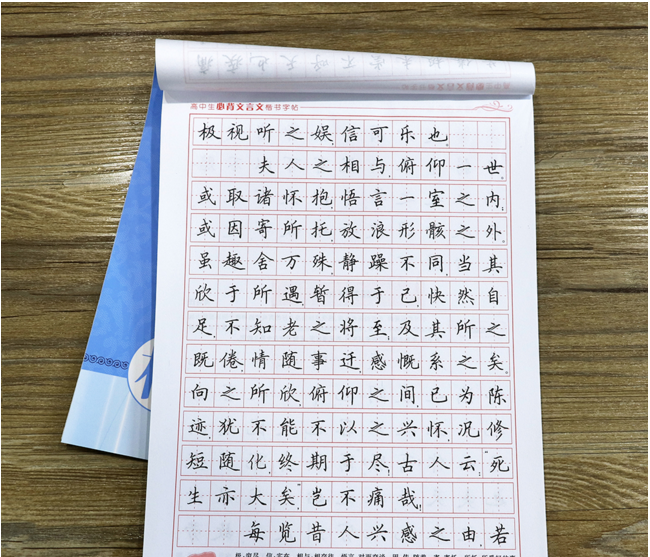 高中生必背文言文楷书字帖
极视听之娱,信可乐也。
夫人之相与,俯仰一世。
或取诸怀抱,悟言一室之内;
或因寄所托,放浪形骸之外。
虽趣舍万殊,静躁不同,当其
欣于所遇,暂得于己,快然自
足,不知老之将至;及其所之
既倦,情随事迁,感慨系之矣。
向之所欣,俯仰之间,已为陈
迹,犹不能不以之兴怀,况修
短随化,终期于尽!古人云:“死
生亦大矣”岂不痛哉!
每览昔人兴感之由,若